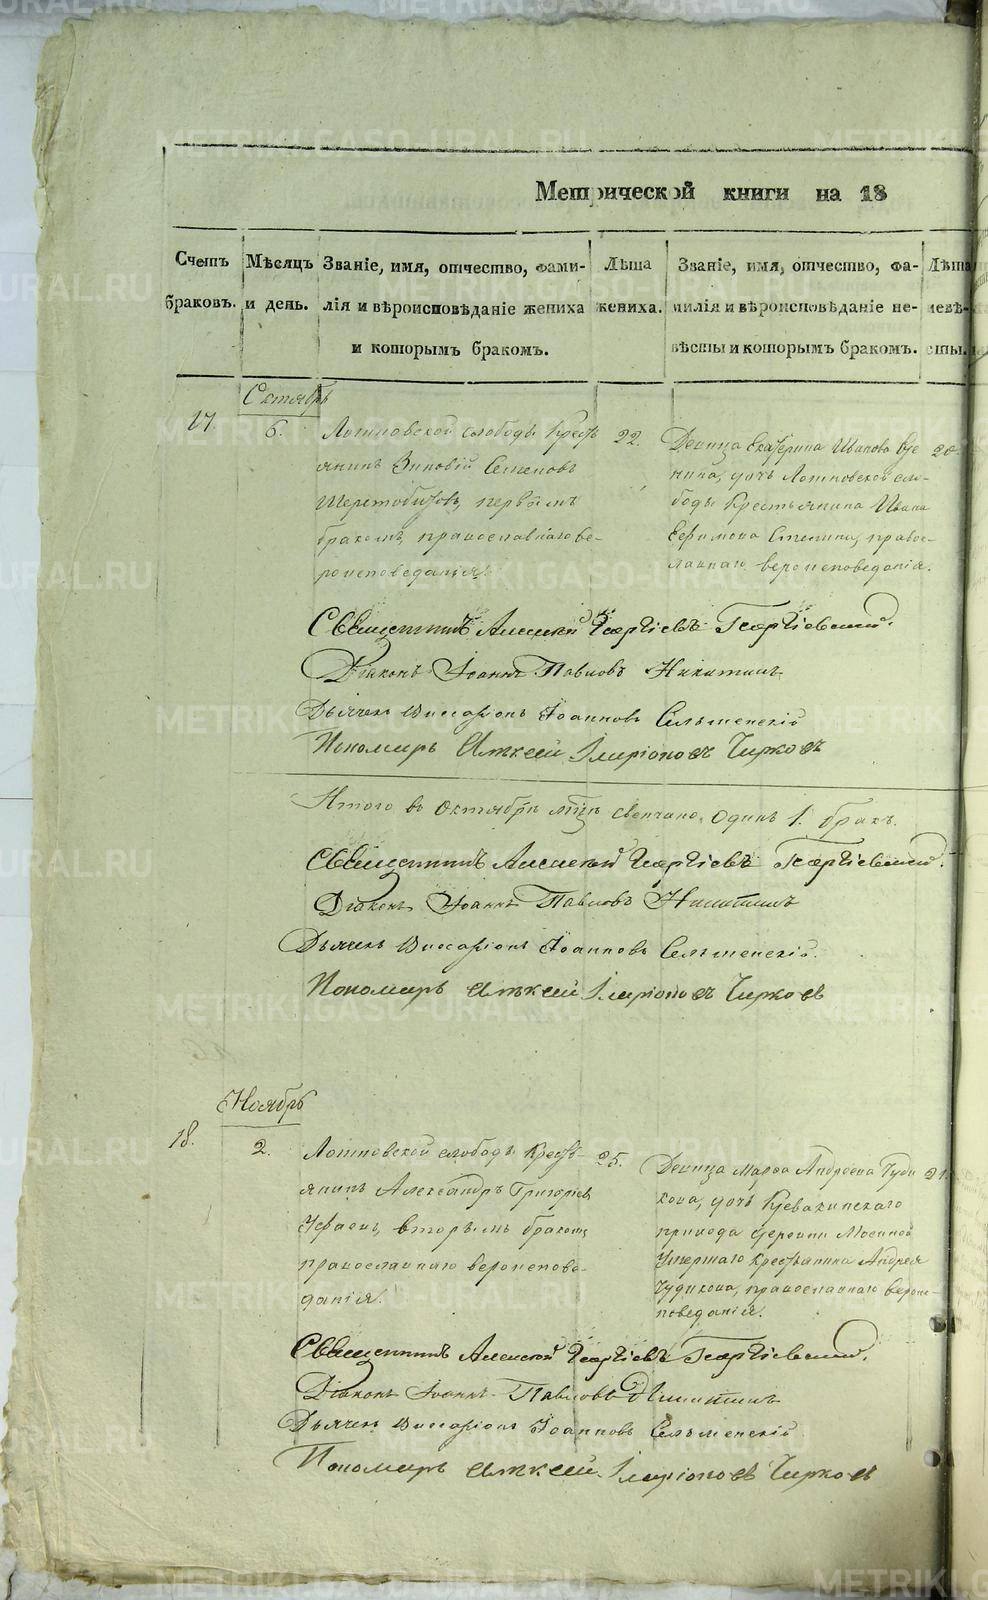 Метрической книги на 18
Счетъ браковъ.
Мѣсяцъ и день.
Званіе, имя, отчество, фами-
лія и вѣроисповѣданіе жениха
и которымъ бракомъ.
Лѣта
жениха.
Званіе, имя, отчество, фа-
милія и вѣроисповѣданіе не-
вѣсты и которымъ бракомъ.
Лѣта
невѣ-
сты.
Октябрь
17.
6.
слободы Кресть
янинъ Зиновій Семеновъ
первымъ
бракомъ, православнаго ве-
роисповеданія.
22.
Девица Екатерина Иванова
дочь сло-
боды Крестьянина Ивана
Ефимова правос-
лавнаго вероисповеданія.
20.
Священникъ Алексей Георгіевъ Георгіевский.
Діаконъ Іоаннъ Павловъ Никитинъ
Дьячекъ Виссаріонъ Іоанновъ Сельменскій
Пономарь Алексей Иларіоновъ Чирковъ
Итого въ Октябрѣ мцѣ свенчано одинъ 1. бракъ.
Священникъ Алексей Георгіевъ Георгіевский.
Діаконъ Іоаннъ Павловъ Никитинъ
Дьячекъ Виссаріонъ Іоанновъ Сельменскій.
Пономарь Алексей Иларіоновъ Чирковъ
Ноябрь
18.
2.
слободы Кресть-
янинъ Александръ Григорьев
вторымъ бракомъ
православнаго вероиспове-
данія.
25.
Девица Марфа Андреева Чуди
кова, дочь Кевакинскаго
прихода деревни Мосиной
Умершаго Крестьянина Андрея
Чудикова, православнаго вероис-
поведанія.
21.
Священникъ Алексей Георгіевъ Георгіевский.
Діаконъ Іоаннъ Павловъ Никитинъ
Дьячекъ Виссаріонъ Іоанновъ Сельменскій
Пономарь Алексей Иларіоновъ Чирковъ
METRIKI.GASO-URAL.RU